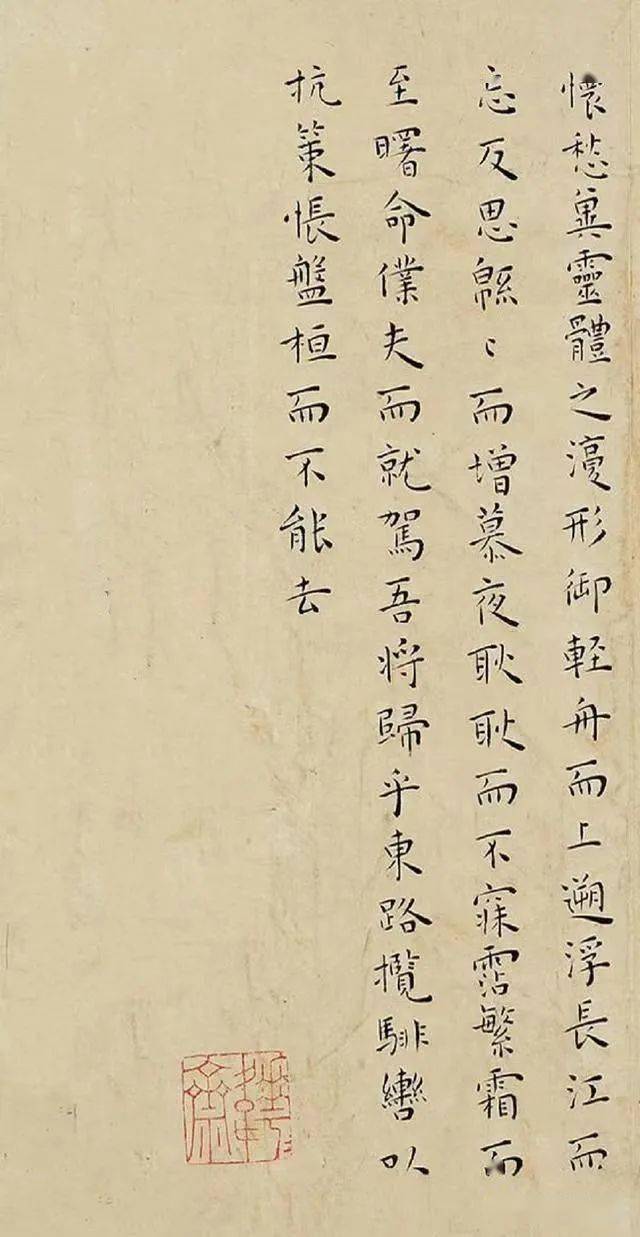 懷愁兾靈體之澓形御輕舟而上遡浮長江而
忘反思緜〻而增慕夜耿耿而不寐霑繁霜而
至曙命僕夫而就駕吾將歸乎東路攬騑轡以
抗策悵盤桓而不能去